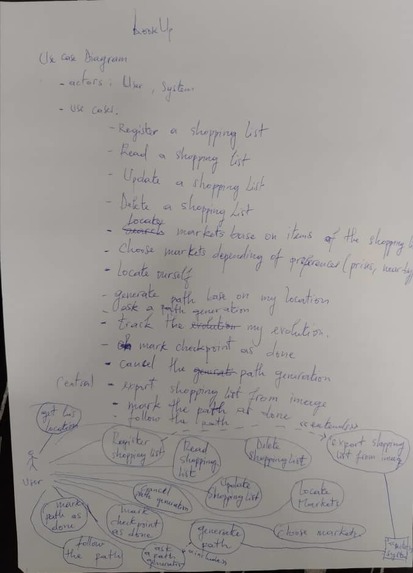 LookUp
Use case Diagram
- actors: User, System
- use cases.
- Register a shopping list
- Read a shopping list
- Update a shopping list
- Delete a shopping list
Locate
- search markets base on items of the shopping
- Choose markets depending of preferences (prices,
- Locate ourself
- generate path base on my location
- ask a path generation
- track the evolution my evolution.
- mark checkpoint as done
- cancel the path generation
- export shopping list from imerge
- mark the path as done
- follow the path
<<extends>>
location
Register shopping list
Read shopping list
Delete shopping list
Export shopping list from
User
cancel path generation
Update shopping list
Locate Markets
mark path as done
mark checkpoint as done
generate path
choose markets
follow the path
ask a path generation